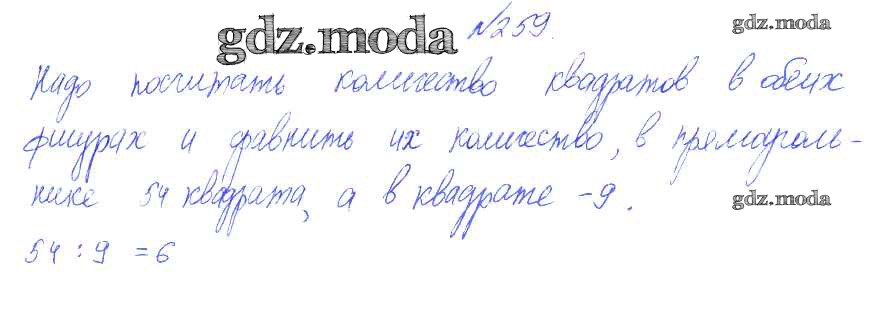 №259.
gdz.moda gdz.moda
Надо посчитать количество квадратов в обеих
фигурах и сравнить их количество, в прямоуголь-
нике 54 квадрата, а в квадрате - 9.
gdz.moda
54 : 9 = 6